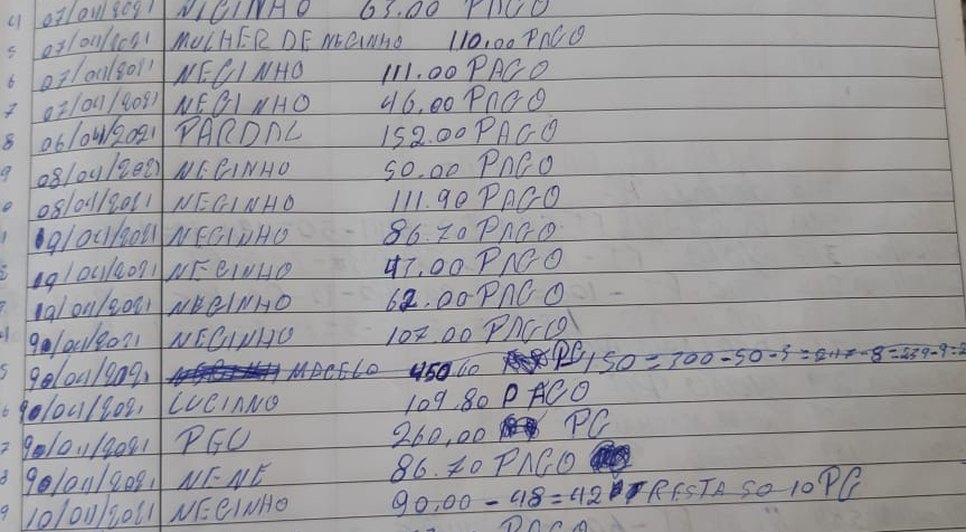 4 07/04/2021 NEGINHO 63.00 PAGO
5 07/04/2021 MULHER DE NEGINHO 110,00 PAGO
6 07/04/2021 NEGINHO 111.00 PAGO
7 07/04/2021 NEGINHO 46,00 PAGO
8 06/04/2021 PARDAL 152.00 PAGO
9 08/04/2021 NEGINHO 50.00 PAGO
0 08/04/2021 NEGINHO 111.90 PAGO
1 09/04/2021 NEGINHO 86.70 PAGO
09/04/2021 NEGINHO 47.00 PAGO
09/04/2021 NEGINHO 62.00 PAGO
4 90/04/2021 NEGINHO 107.00 PAGO
5 90/04/2021 MACELO 450.00 PG 150=300-50-3=247-8=239-9=2
6 90/04/2021 LUCIANO 109.80 PAGO
7 90/04/2021 PGO 260,00 PG
8 90/04/2021 NENE 86.70 PAGO
9 10/04/2021 NEGINHO 90.00-48=42 RESTA SO 10 PG
PAGO